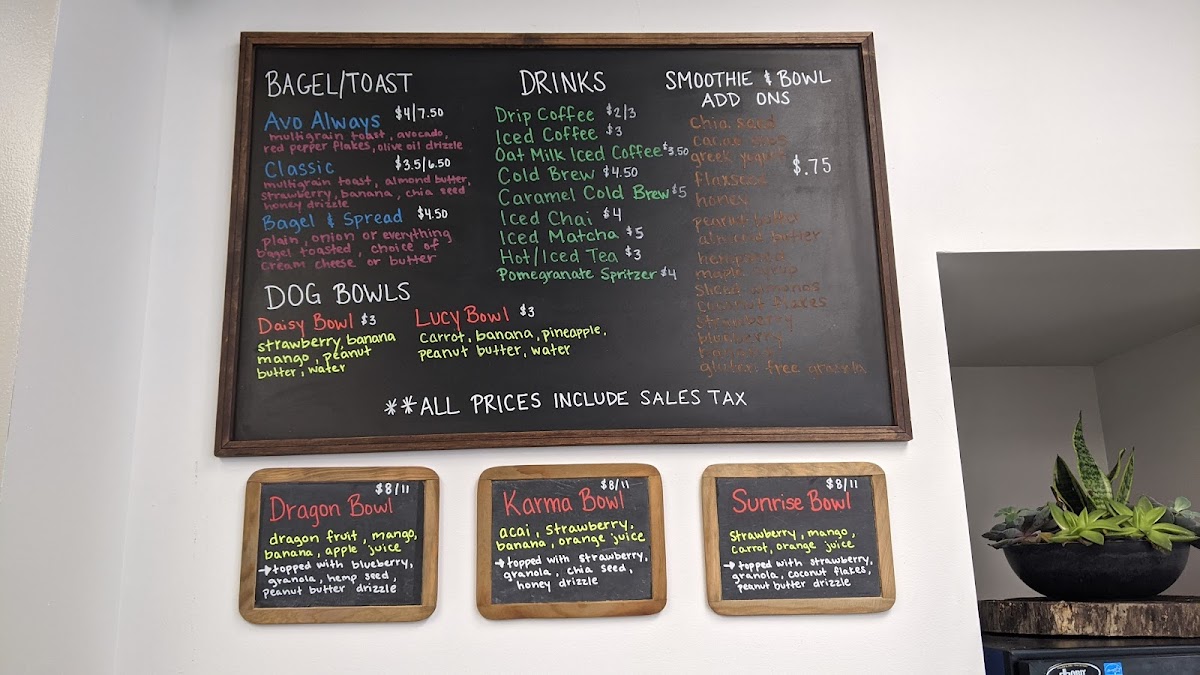 BAGEL/TOAST
Avo Always $4/7.50
multigrain toast, avocado,
red pepper flakes, olive oil drizzle
Classic $3.5/6.50
multigrain toast, almond butter,
strawberry, banana, chia seed
honey drizzle
Bagel & Spread $4.50
plain, onion or everything
bagel toasted, choice of
cream cheese or butter
DOG BOWLS
Daisy Bowl $3
strawberry, banana
mango, peanut
butter, water
Lucy Bowl $3
carrot, banana, pineapple,
peanut butter, water
DRINKS
Drip Coffee $2/3
Iced Coffee $3
Oat Milk Iced Coffee $3.50
Cold Brew $4.50
Caramel Cold Brew $5
Iced Chai $4
Iced Matcha $5
Hot/Iced Tea $3
Pomegranate Spritzer $4
SMOOTHIE & BOWL
ADD ONS
$.75
chia seed
cacao nibs
greek yogurt
flaxseed
honey
peanut butter
almond butter
hemp seed
maple syrup
sliced almonds
coconut flakes
strawberry
blueberry
banana
gluten free granola
**ALL PRICES INCLUDE SALES TAX
$8/11
Dragon Bowl
dragon fruit, mango,
banana, apple juice
→topped with blueberry,
granola, hemp seed,
peanut butter drizzle
$8/11
Karma Bowl
acai, strawberry,
banana, orange juice
→topped with strawberry,
granola, chia seed,
honey drizzle
$8/11
Sunrise Bowl
strawberry, mango,
carrot, orange juice
→topped with strawberry,
granola, coconut flakes,
peanut butter drizzle